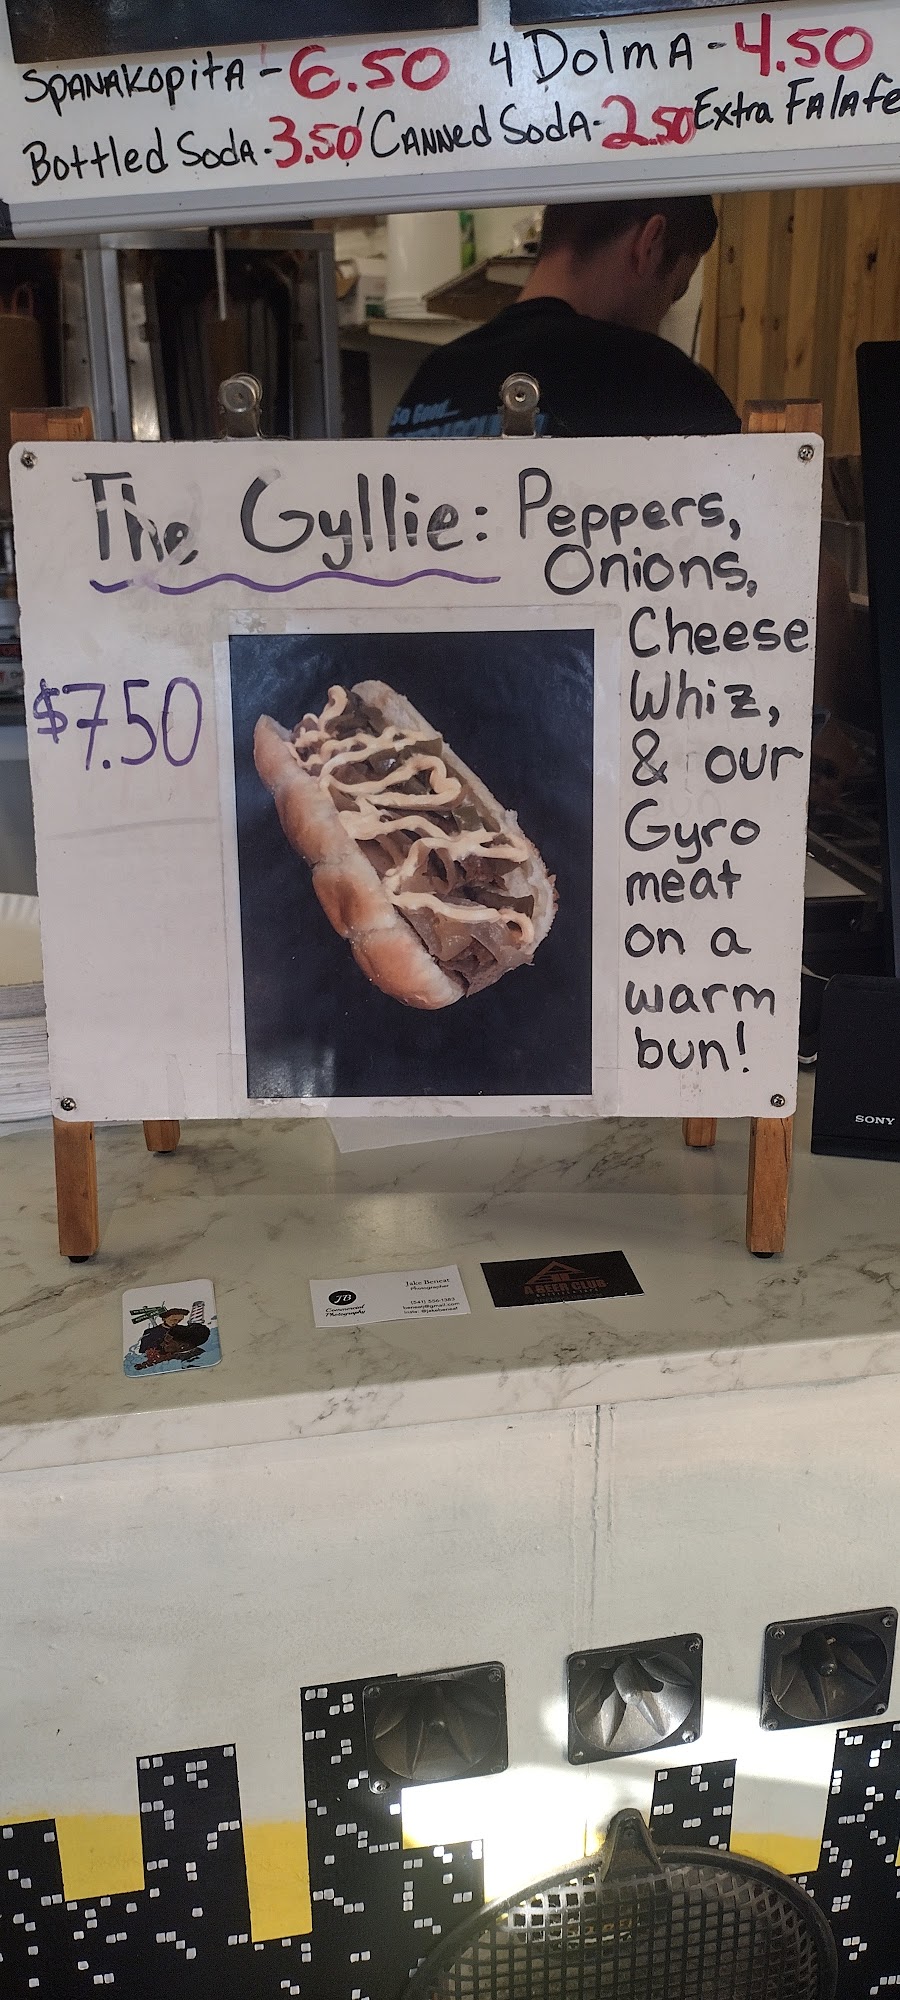 Spanakopita - 6.50 4 Dolma - 4.50
Bottled Soda - 3.50 Canned Soda - 2.50 Extra Falafe
So Good...
The Gyllie: Peppers,
Onions,
Cheese
Whiz,
& our
Gyro
meat
on a
warm
bun!
$7.50
SONY
JB
Commercial
Photography
Jake Beneat
Photographer
A BEER CLUB